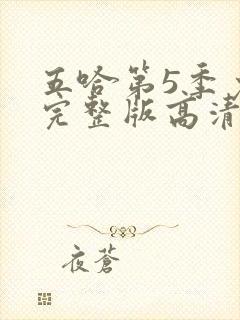 五哈第5季
完整版高清
夜蒼